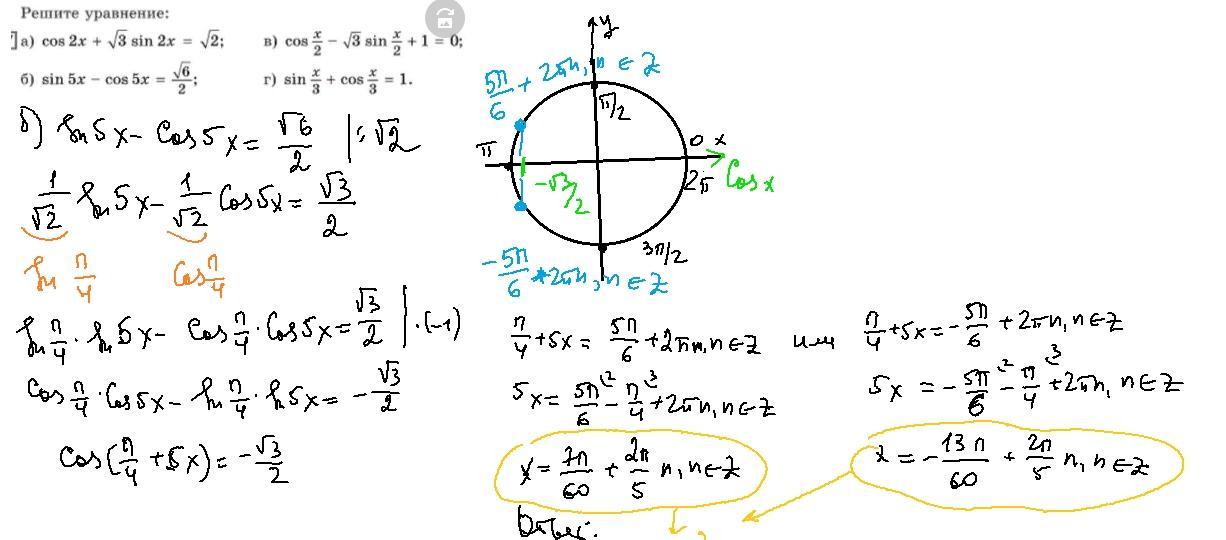 Решите уравнение:
а) cos 2x + √3 sin 2x = √2; в) cos x/2 − √3 sin x/2 + 1 = 0;
б) sin 5x − cos 5x = √6/2; г) sin x/3 + cos x/3 = 1.
б) sin 5x − cos 5x = √6/2 | : √2
1/√2 sin 5x − 1/√2 cos 5x = √3/2
sin π/4 cos π/4
sin π/4 · sin 5x − cos π/4 · cos 5x = √3/2 | · (−1)
cos π/4 · cos 5x − sin π/4 · sin 5x = −√3/2
cos(π/4 + 5x) = −√3/2
y
5π/6 + 2πn, n ∈ Z
π/2
π
0 x
−√3/2
2π cos x
3π/2
−5π/6 + 2πn, n ∈ Z
π/4 + 5x = 5π/6 + 2πn, n ∈ Z или π/4 + 5x = −5π/6 + 2πn, n ∈ Z
5x = 5π/6 ² − π/4 ³ + 2πn, n ∈ Z 5x = −5π/6 ² − π/4 ³ + 2πn, n ∈ Z
x = 7π/60 + 2π/5 n, n ∈ Z x = −13π/60 + 2π/5 n, n ∈ Z
Ответ: